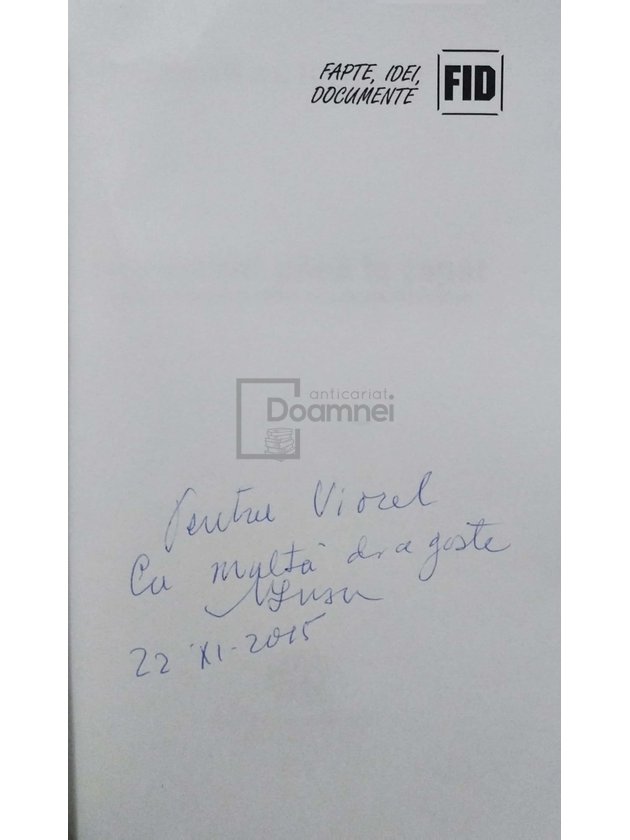 FAPTE, IDEI,
DOCUMENTE
FID
anticariat
Doamnei
Pentru Viorel
Cu multă dragoste
22 XI-2015